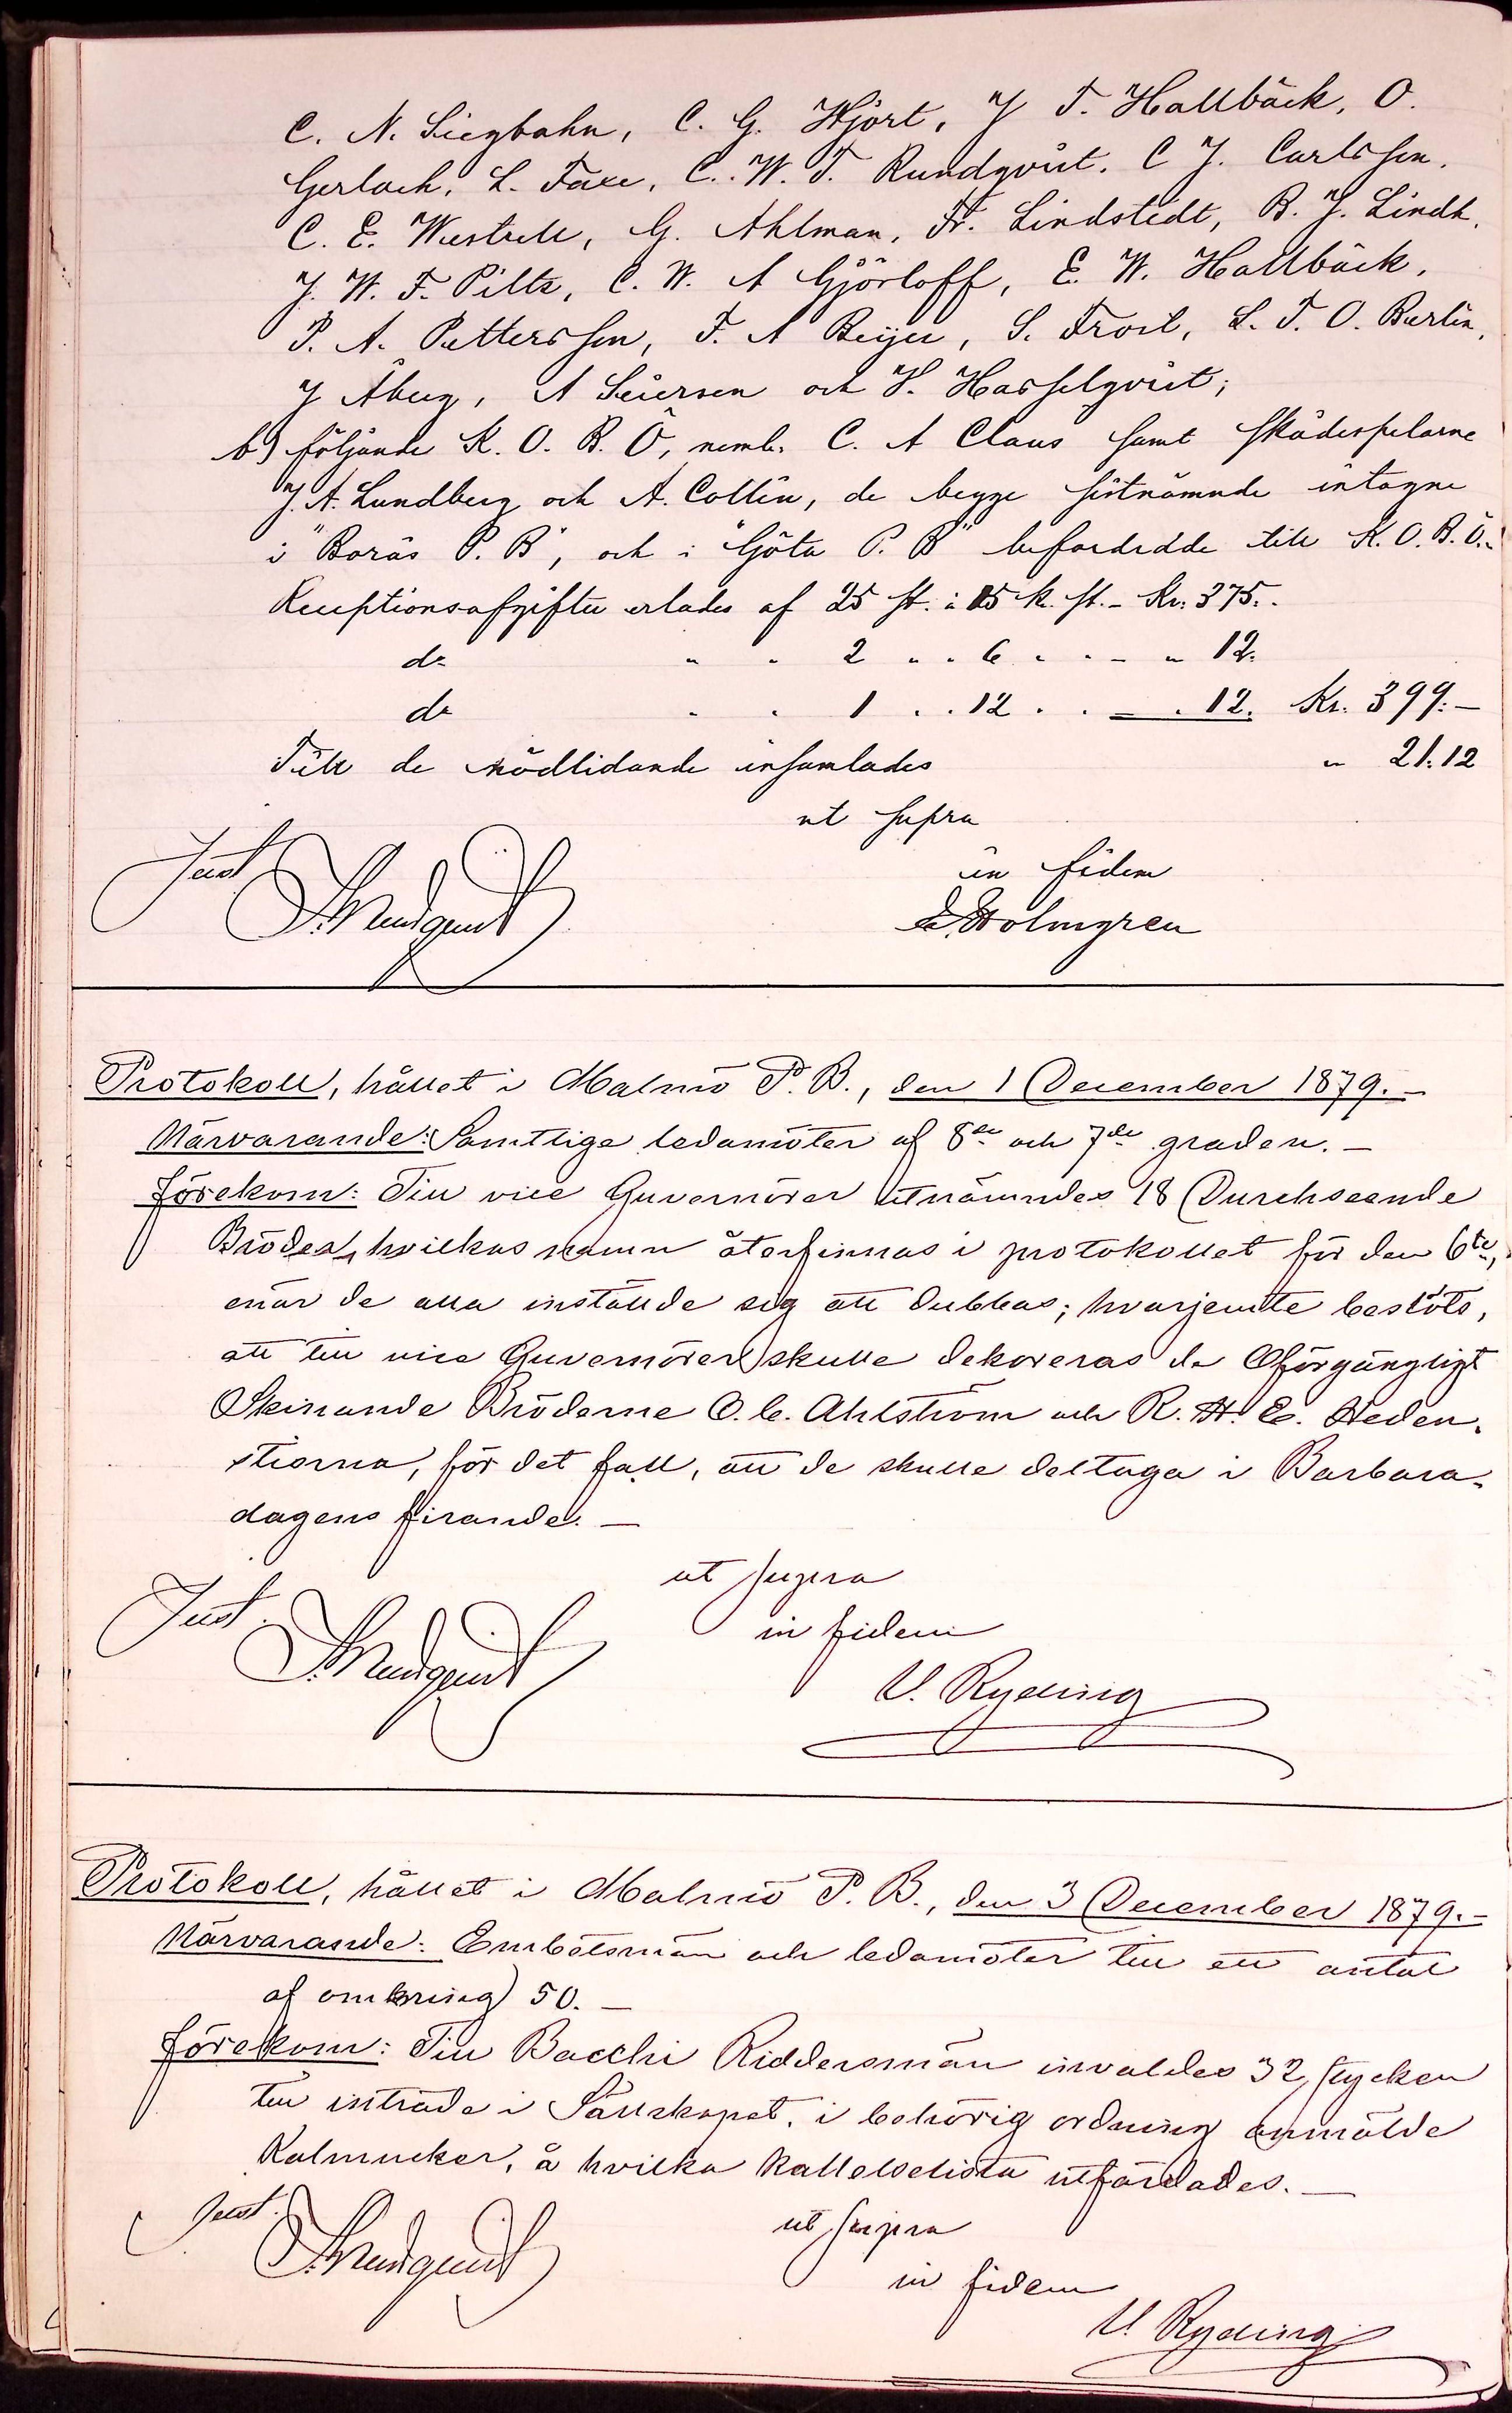 C. N. Siegbahn, C. G. Hjort, J T. Hallbäck, O.
Gerlach, L. Faxe, C. W. T. Rundqvist. C J. Carlsson.
C. E. Westrell, G. Ahlman, Fr. Lindstedt, B. J. Lindh,
J. W. F. Piltz, C. W. A Gjörloff, E. W. Hallbäck,
P. A. Pettersson, F. A Beijer, S. Frost, L. T. O. Berlin,
J Åberg, A Seiersen och H. Hasselqvist;
b) följande K. O. B. Ö, neml. C. A Claus samt skådespelarne
J. A. Lundberg och A. Collin, de begge sistnämnde intagne
i "Borås P. B", och i "Göta P. B" befordrade till K. O. B. Ö.
Receptionsafgifter erlades af 25 st. à 15 k. st. - Kr. 375..
do " " 2 " " 6 " " - " 12.
do " " 1 " " 12 " " - " 12. Kr. 399.-
Till de nödlidande insamlades " 21.12
ut supra
in fidem
Just
E. Holmgren
Protokoll, hållet i Malmö P. B., den 1 December 1879. -
Närvarande: Samtlige ledamöter af 8de och 7de graden. -
Förekom: Till vice Guvernörer utnämndes 18 Durchseende
Bröder, hvilkas namn återfinnas i protokollet för den 6te,
enär de alla inställde sig att dubbas; hvarjemte beslöts,
att till vice Guvernörer skulle dekoreras de Oförgängligt
Skinande Bröderne O. C. Ahlström och R. H. E. Heden-
stierna, för det fall, att de skulle deltaga i Barbara-
dagens firande. -
ut supra
Just.
in fidem
U. Ryding
Protokoll, hållet i Malmö P. B., den 3 December 1879. -
Närvarande: Embetsmän och ledamöter till ett antal
af omkring 50. -
Förekom: Till Bacchi Riddersmän invaldes 32 stycken
till inträde i Sällskapet, i behörig ordning anmälde
Kalmucker, å hvilka kallelselista utfärdades. -
Just.
ut supra
in fidem
U. Ryding